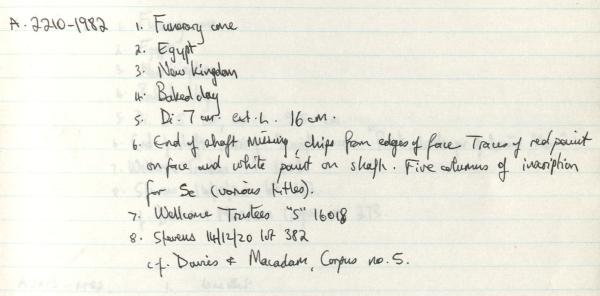 A.2210-1982 1. Funerary cone
2. Egypt
3. New Kingdom
4. Baked clay
5. Di. 7 cm. ext. L. 16 cm.
6. End of shaft missing, chips from edges of face. Traces of red paint
on face and white paint on shaft. Five columns of inscription
for Se (various titles).
7. Wellcome Trustees "S" 16018
8. Stevens 14/12/20 lot 382
c.f. Davies & Macadam, Corpus no. 5.